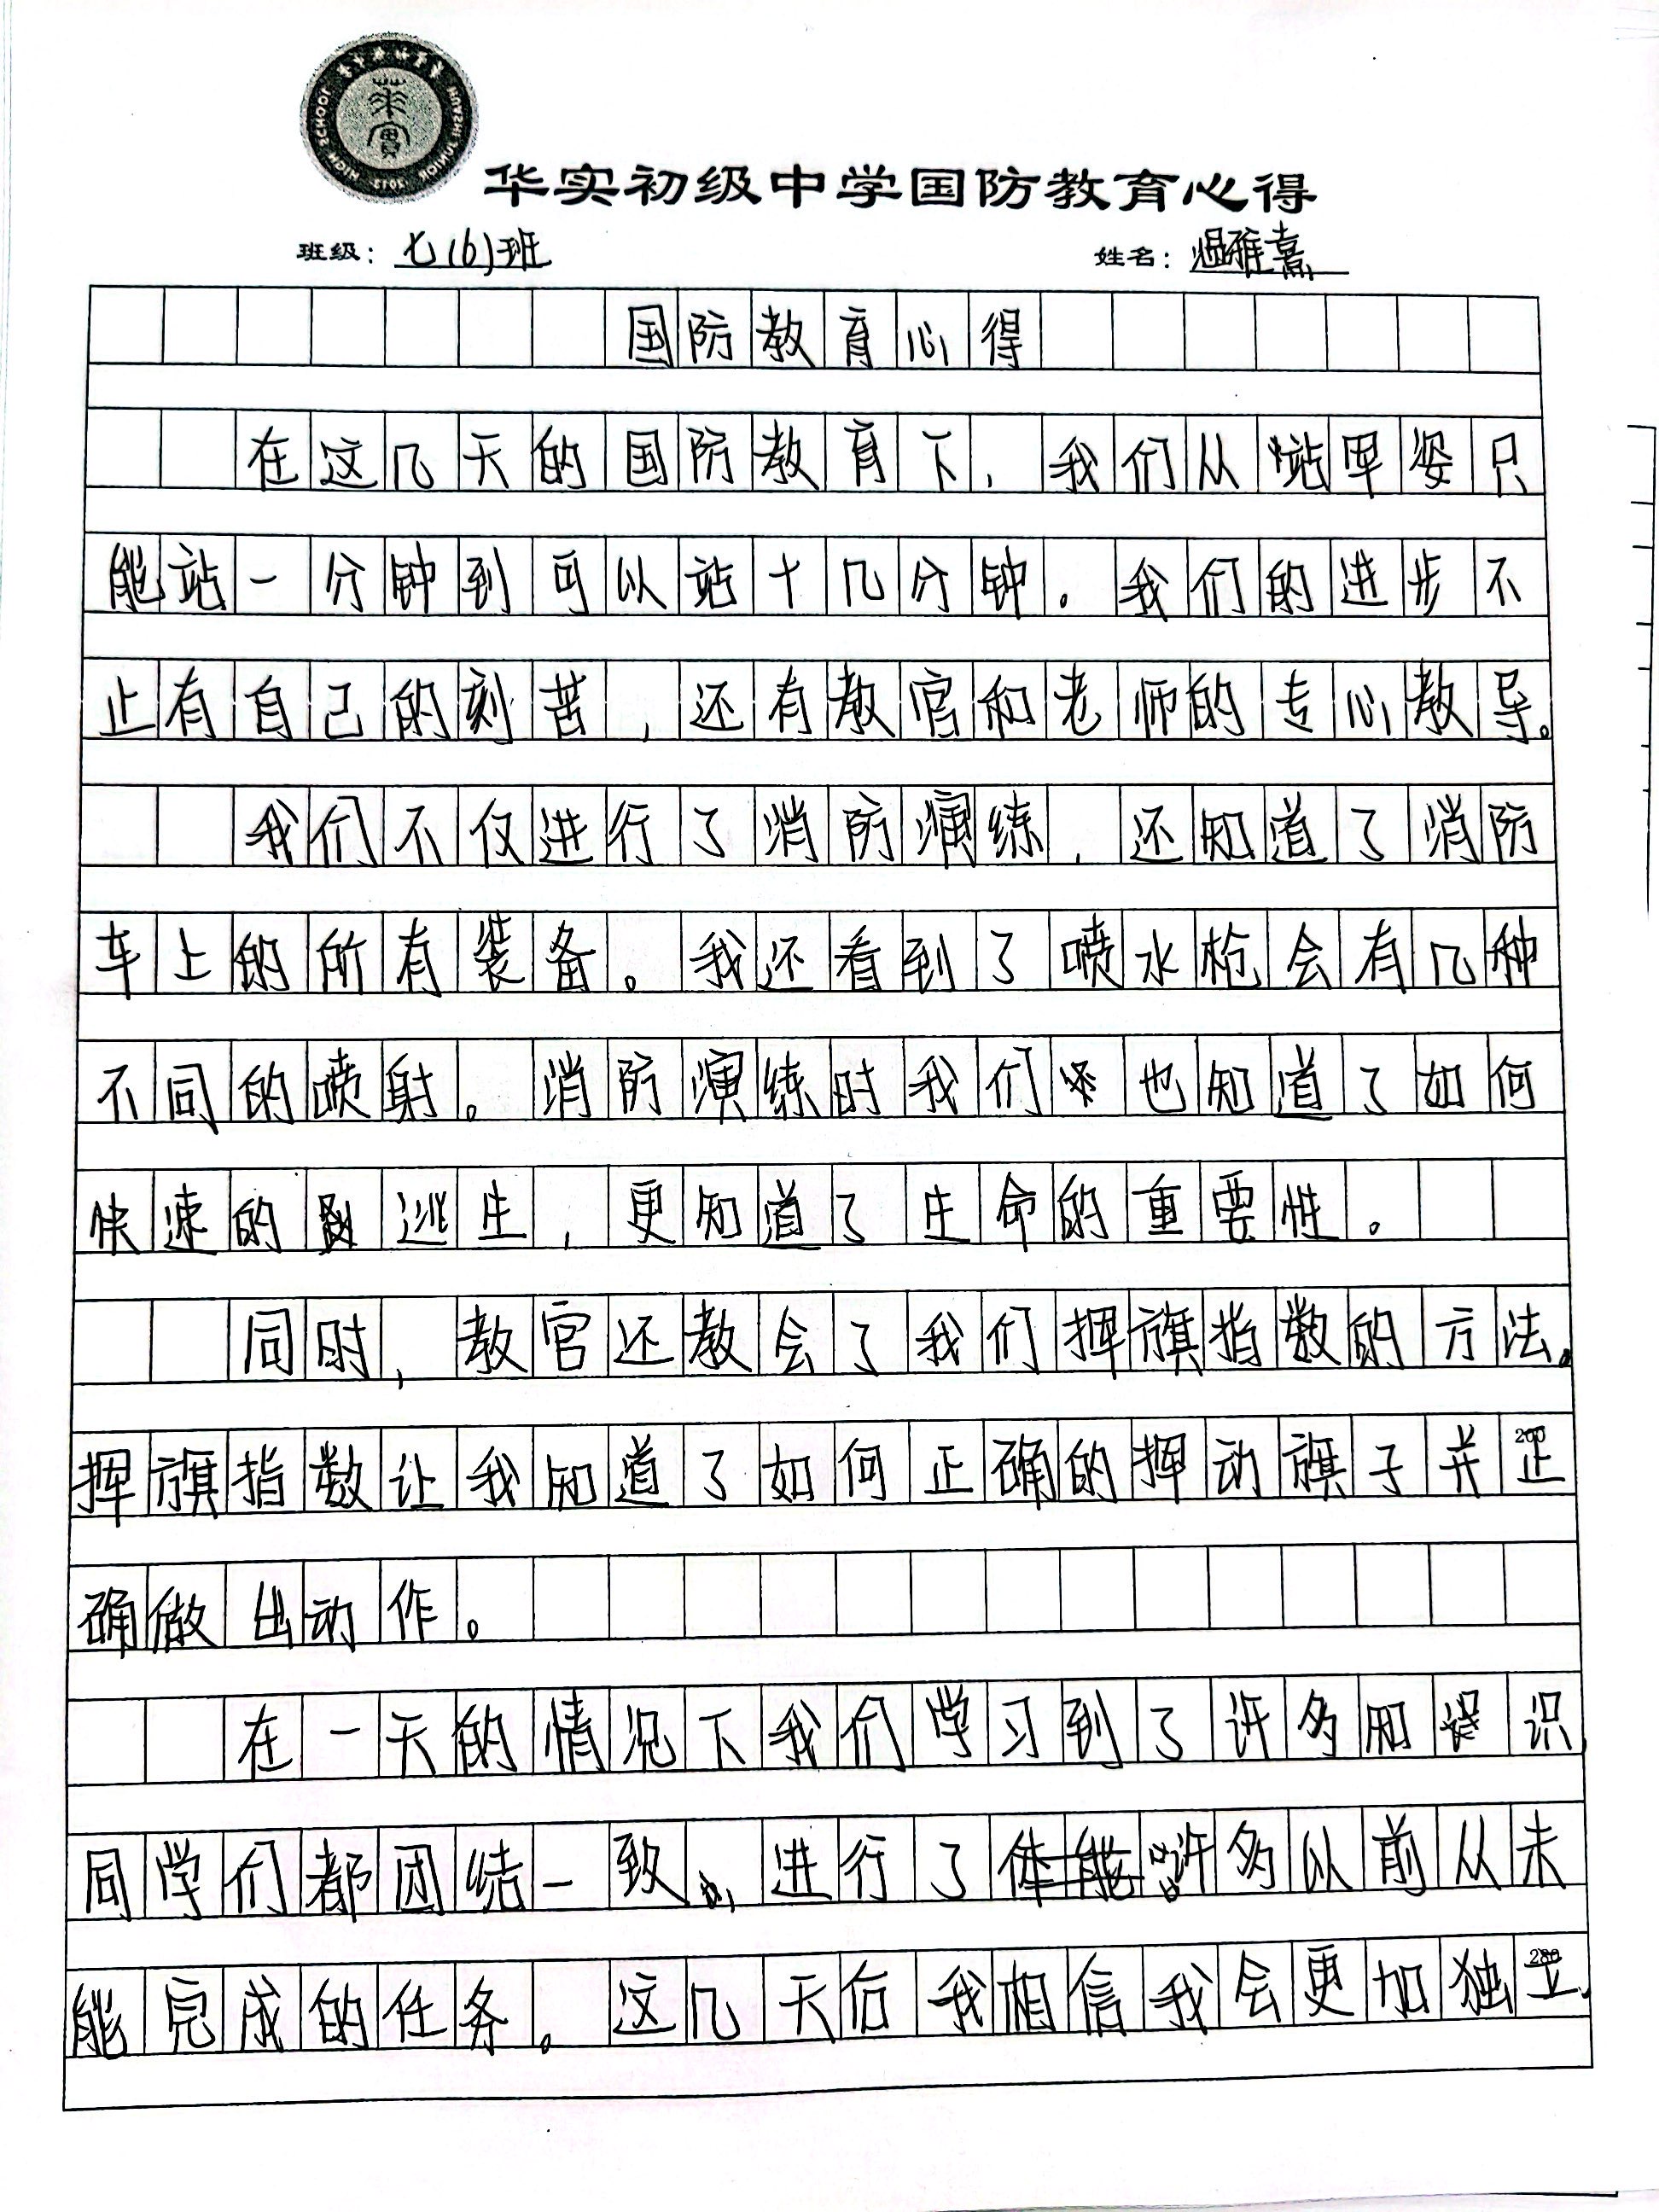 華實
HUASHI JUNIOR HIGH SCHOOL 2012
华实初级中学国防教育心得
班级：七(6)班 姓名：温雅熹
国防教育心得
在这几天的国防教育下，我们从站军姿只
能站一分钟到可以站十几分钟。我们的进步不
止有自己的刻苦，还有教官和老师的专心教导。
我们不仅进行了消防演练，还知道了消防
车上的所有装备。我还看到了喷水枪会有几种
不同的喷射。消防演练时我们也知道了如何
快速的逃生，更知道了生命的重要性。
同时，教官还教会了我们挥旗指数的方法。
挥旗指数让我知道了如何正确的挥动旗子并正
200
确做出动作。
在一天的情况下我们学习到了许多知识，
同学们都团结一致，进行了许多以前从未
能完成的任务。这几天后我相信我会更加独立，
280